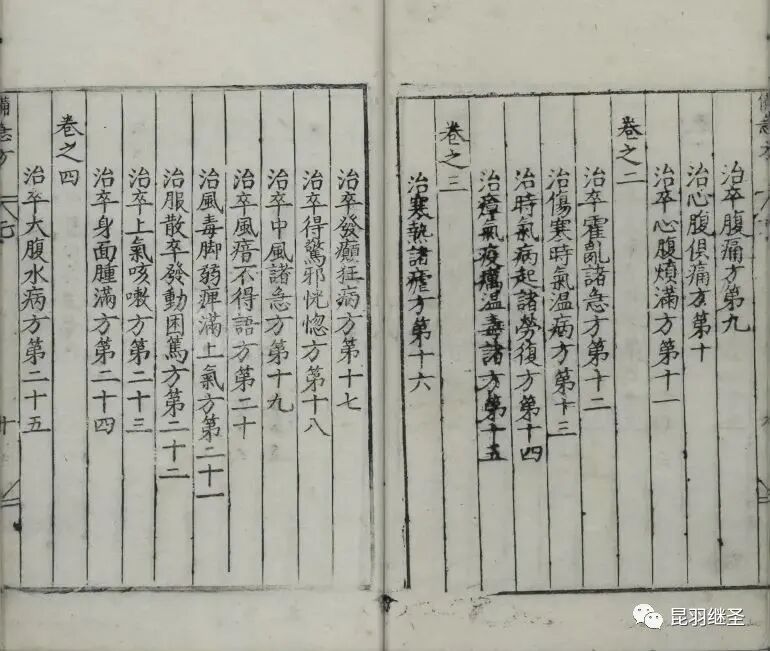 治卒腹痛方第九
治心腹俱痛方第十
治卒心腹煩滿方第十一
卷之二
治卒霍亂諸急方第十二
治傷寒時氣温病方第十三
治時氣病起諸勞復方第十四
治瘴氣疫癘温毒諸方第十五
卷之三
治寒熱諸瘧方第十六
治卒發癲狂病方第十七
治卒得驚邪恍惚方第十八
治卒中風諸急方第十九
治卒風瘖不得語方第二十
治風毒脚弱痹滿上氣方第二十一
治服散卒發動困篤方第二十二
治卒上氣咳嗽方第二十三
治卒身面腫滿方第二十四
卷之四
治卒大腹水病方第二十五
備急方
十
昆羽继圣